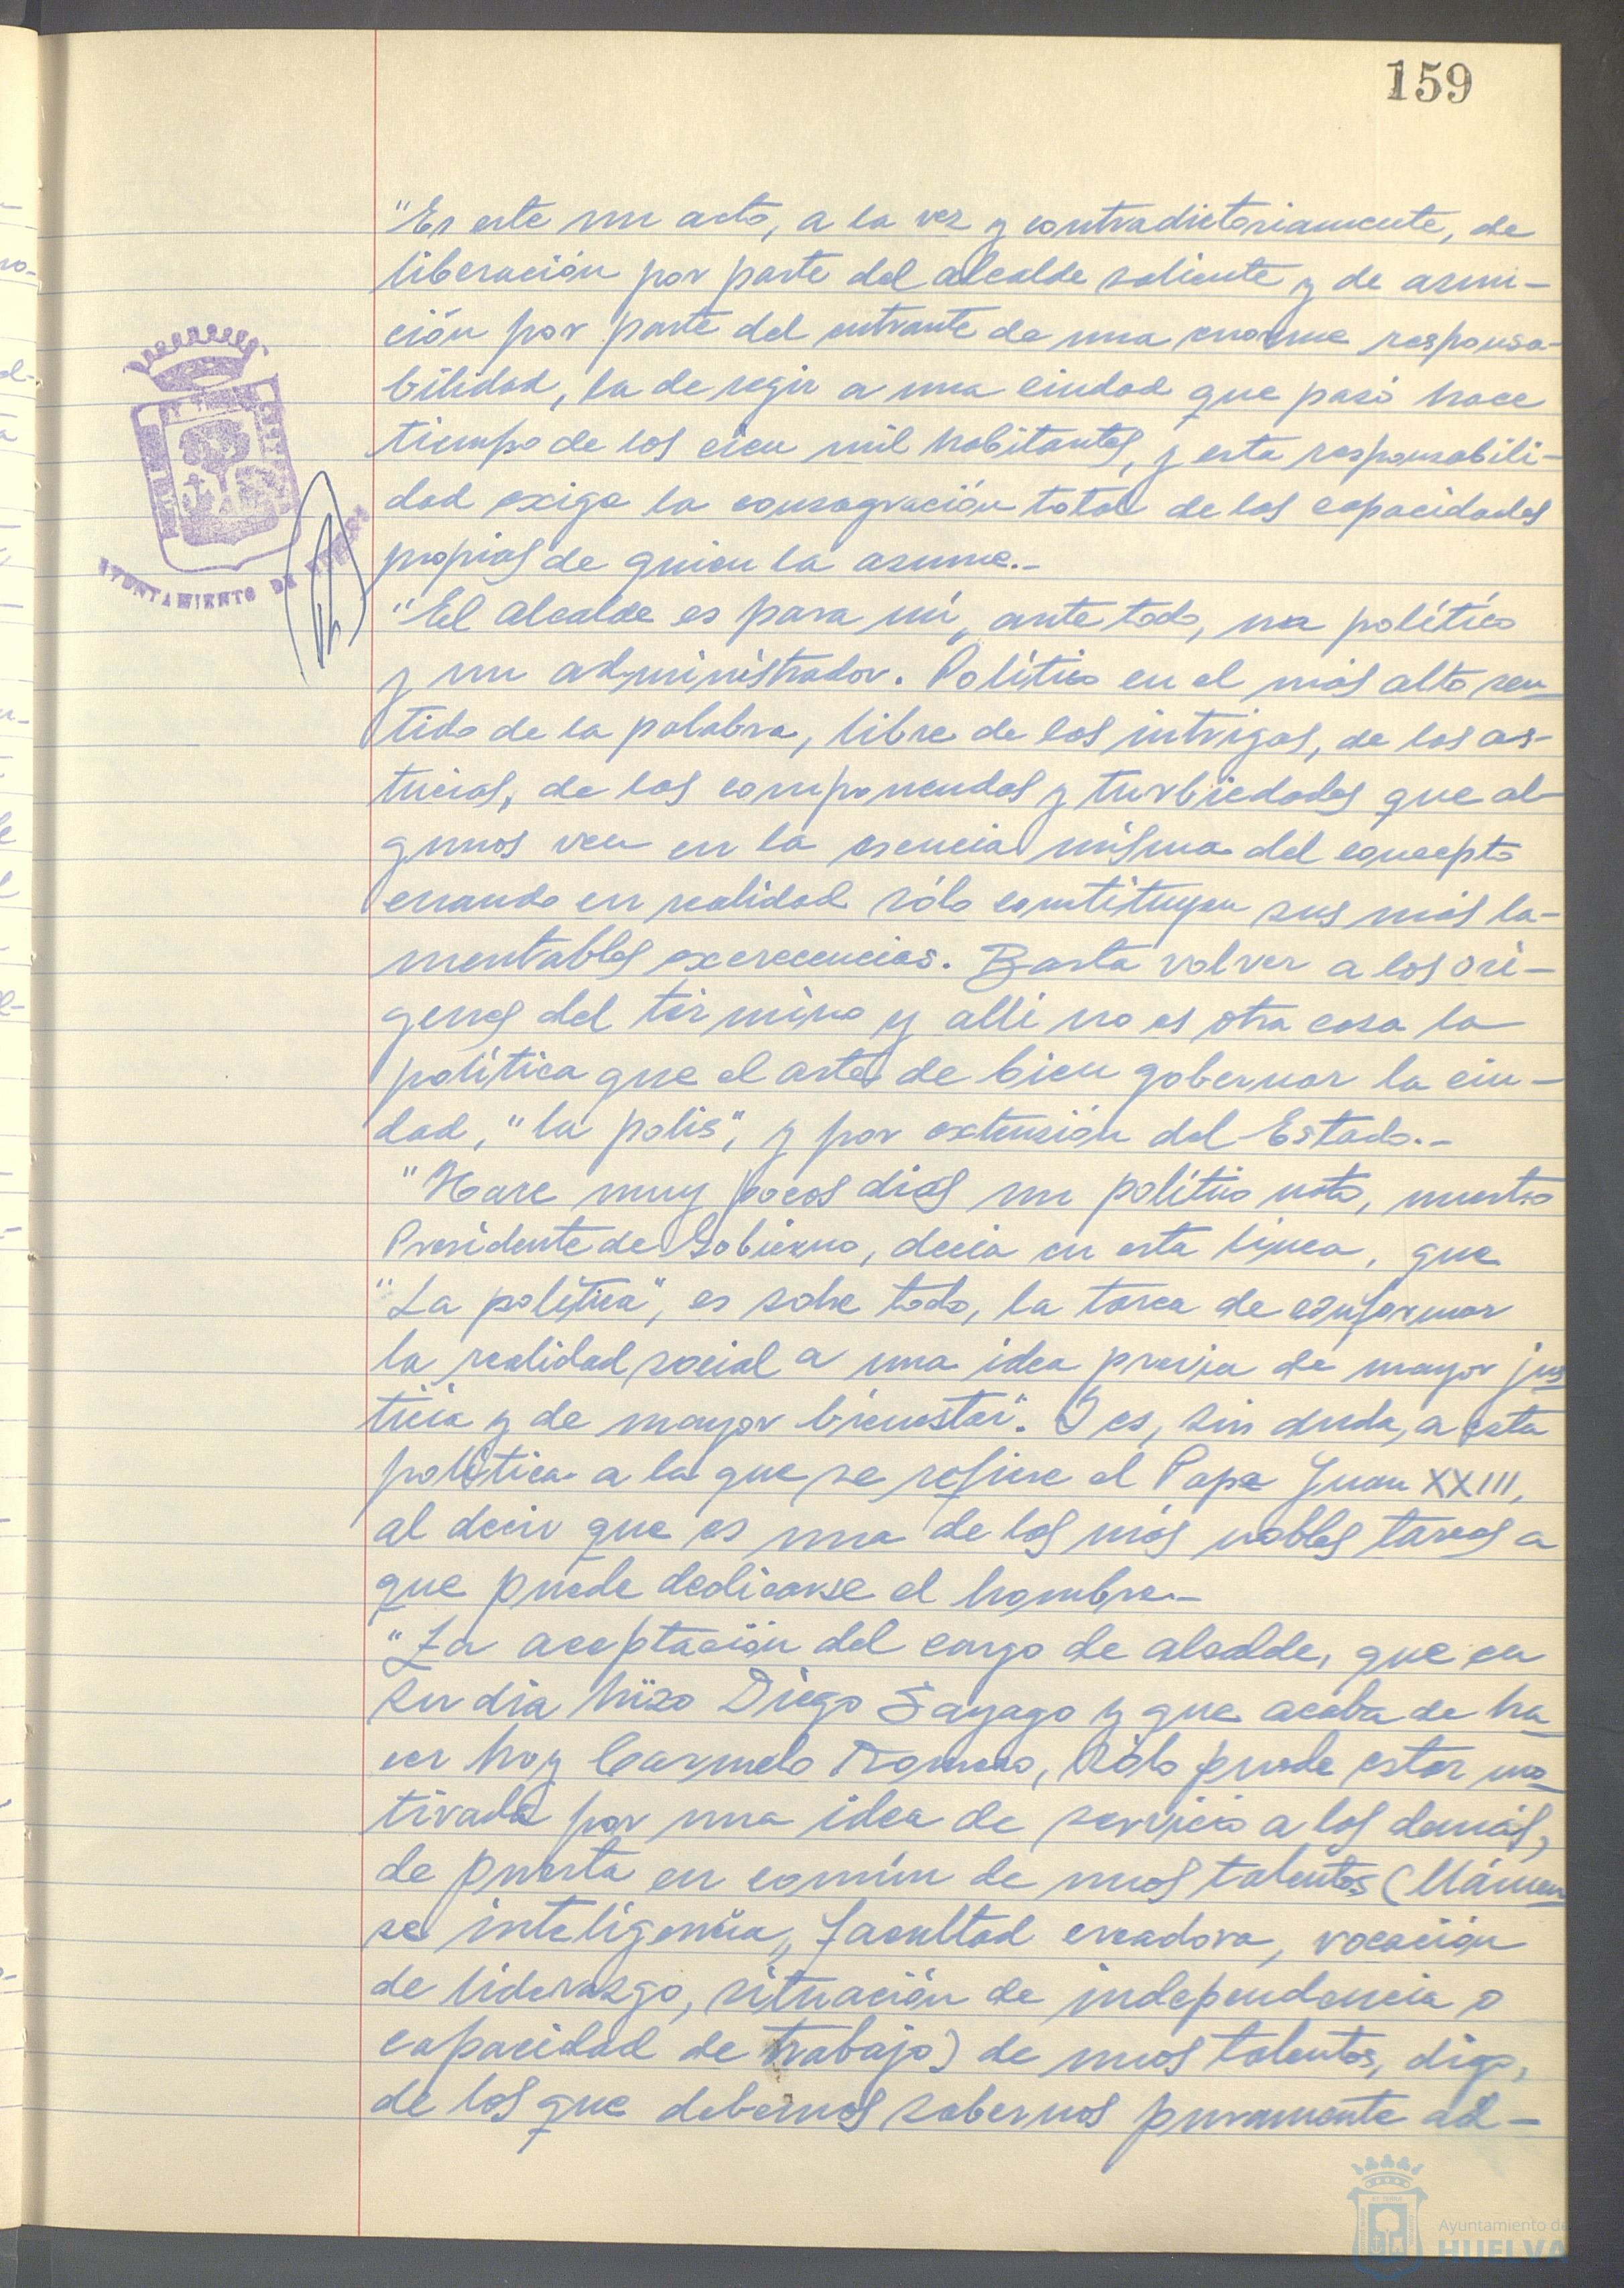 159
"Es este un acto, a la vez y contradictoriamente, de
liberación por parte del alcalde saliente y de asun-
ción por parte del entrante de una enorme responsa-
bilidad, la de regir a una ciudad que pasó hace
tiempo de los cien mil habitantes, y esta responsabili-
dad exige la consagración total de las capacidades
propias de quien la asume.-
"El alcalde es para mí, ante todo, un político
y un administrador. Político en el más alto sen-
tido de la palabra, libre de las intrigas, de las as-
tucias, de las componendas y turbiedades que al-
gunos ven en la esencia misma del concepto
cuando en realidad sólo constituyen sus más la-
mentables excrecencias. Basta volver a los orí-
genes del término y allí no es otra cosa la
política que el arte de bien gobernar la ciu-
dad, "la polis", y por extensión del Estado.-
"Hace muy pocos días un político nato, nuestro
Presidente de Gobierno, decía en esta línea, que
"La política", es sobre todo, la tarea de conformar
la realidad social a una idea previa de mayor jus
ticia y de mayor bienestar". Y es, sin duda, a esta
política a la que se refiere el Papa Juan XXIII,
al decir que es una de las más nobles tareas a
que puede dedicarse el hombre.-
"La aceptación del cargo de alcalde, que en
su día hizo Diego Sayago y que acaba de ha-
cer hoy Carmelo Romero, sólo puede estar mo-
tivada por una idea de servicio a los demás,
de puesta en común de unos talentos (llámen
se inteligencia, facultad creadora, vocación
de liderazgo, situación de independencia o
capacidad de trabajo) de unos talentos, digo,
de los que debemos sabernos puramente ad-
AYUNTAMIENTO DE HUELVA
Ayuntamiento de
HUELVA